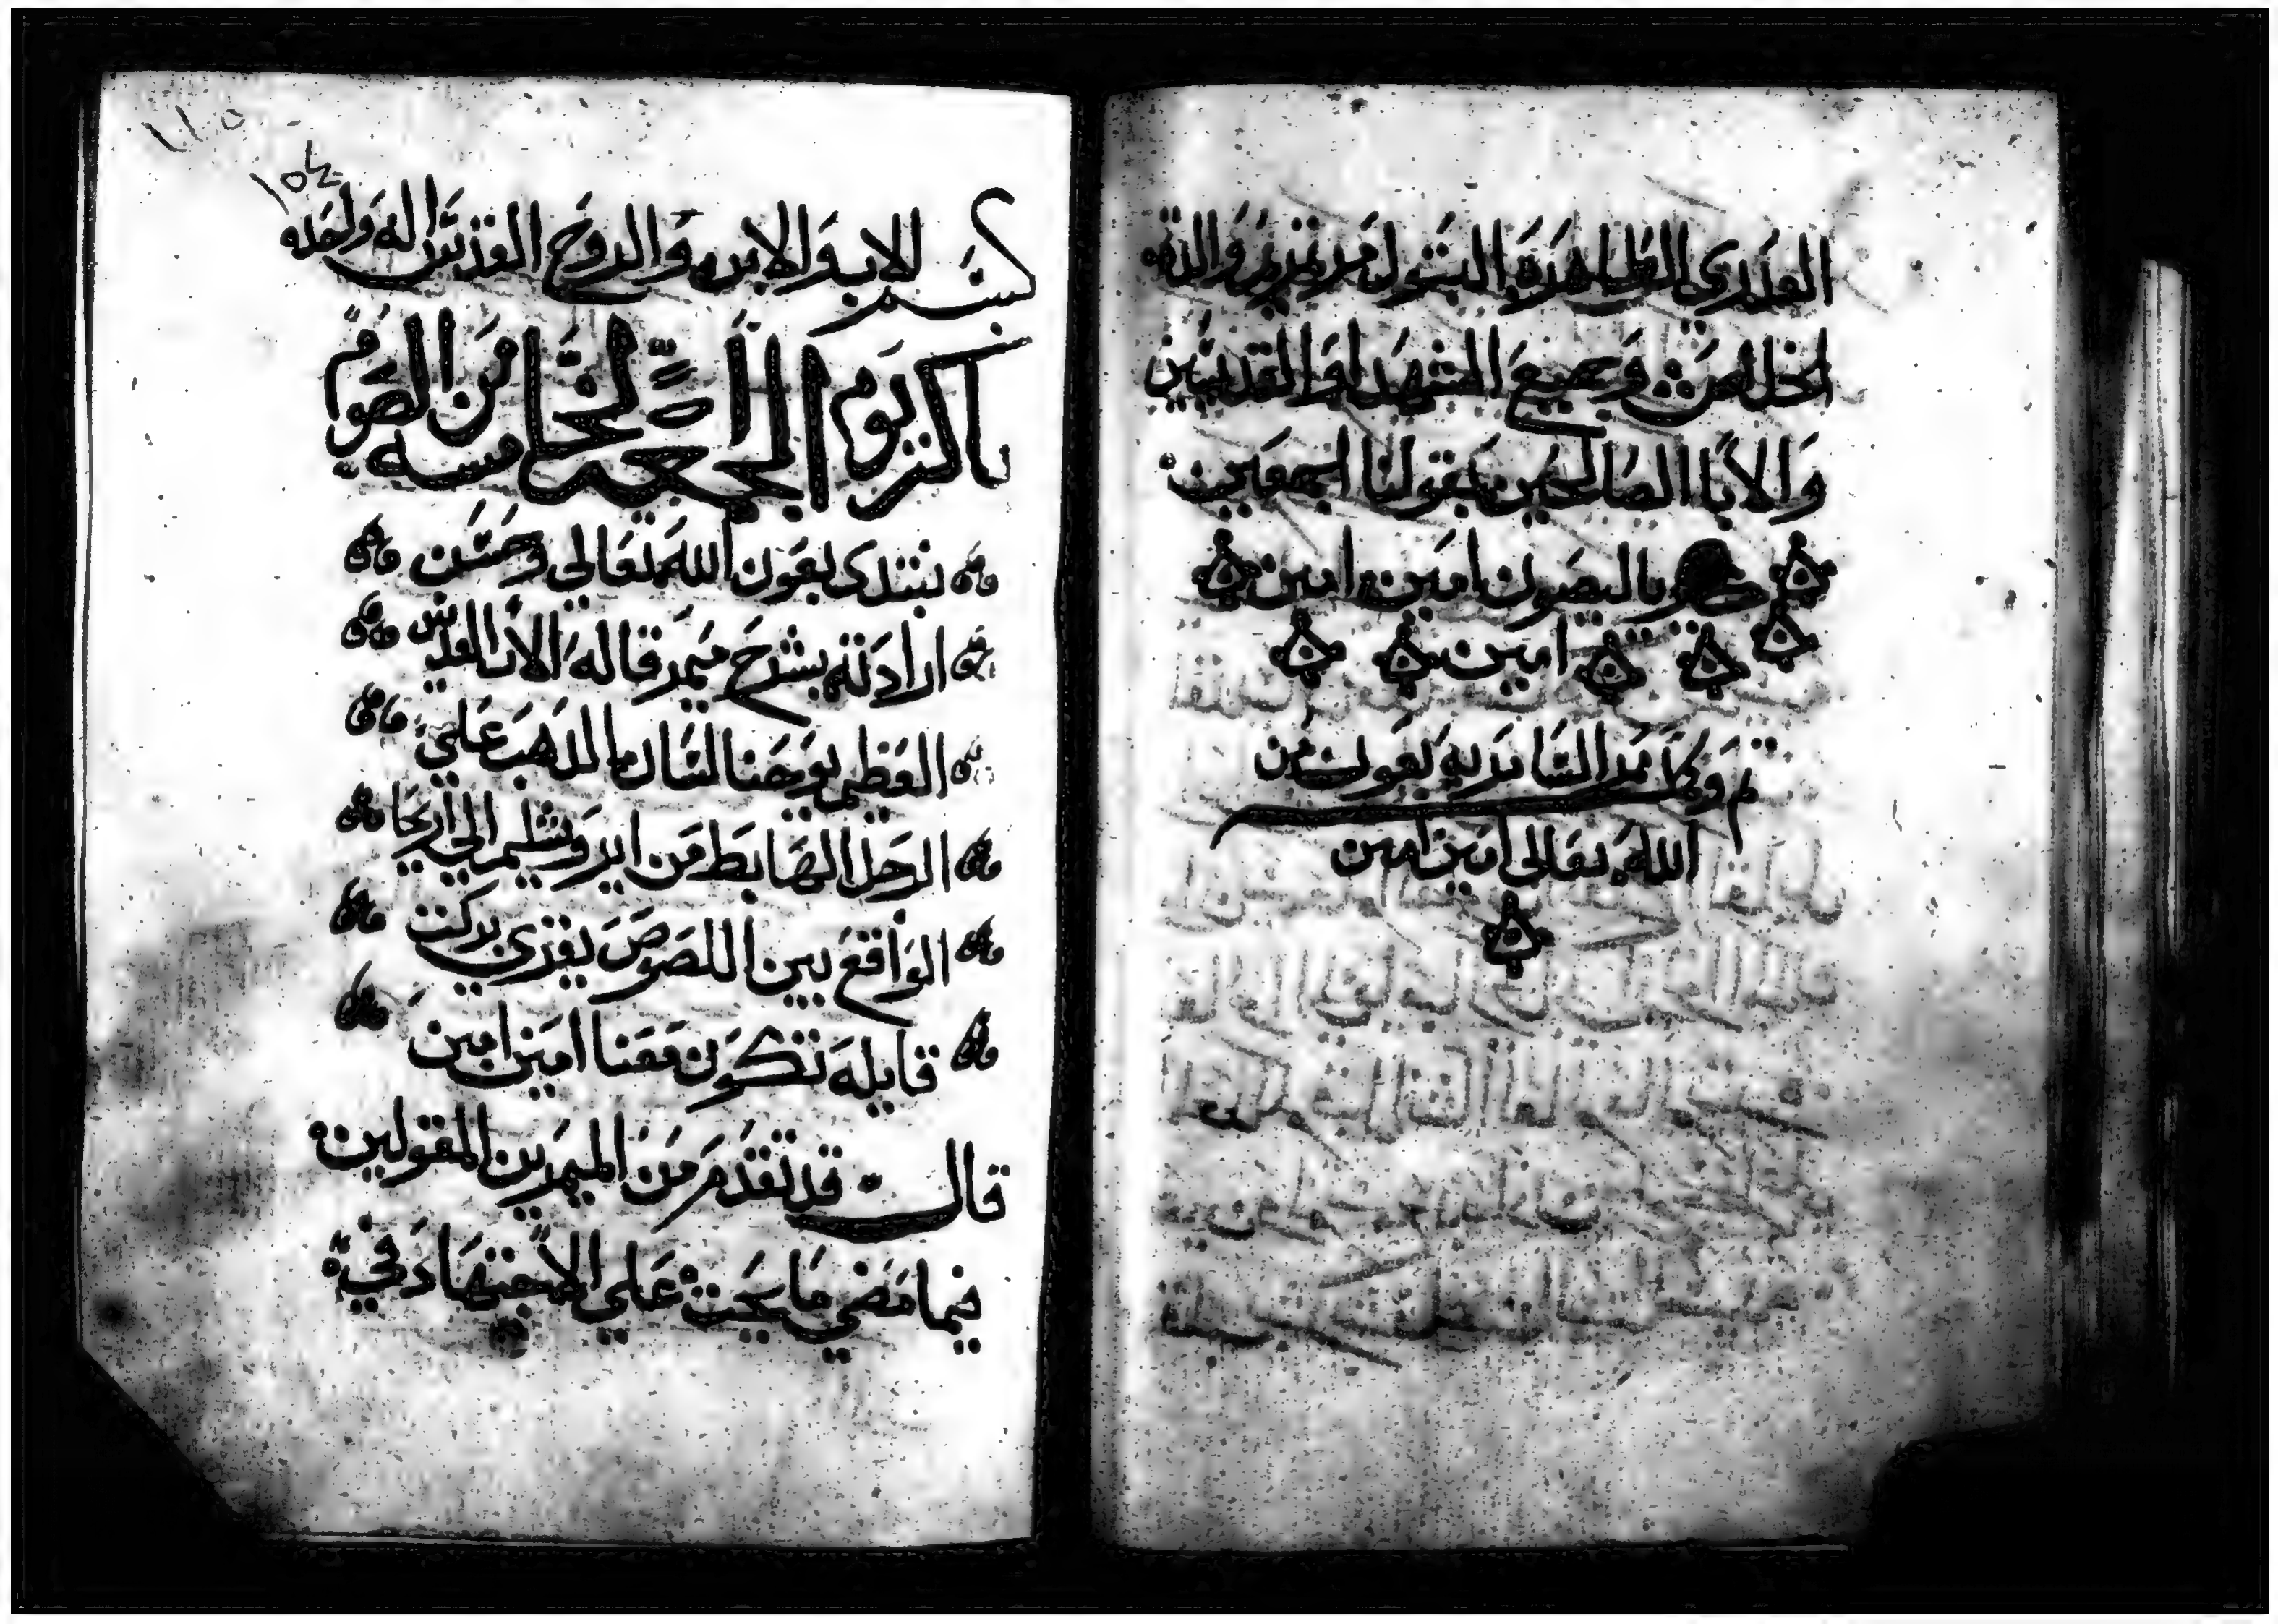 العدري الطاهره البتول مرتمريم والدة
الخلاص وجميع الشهدا والقديسين
والابا الصالحين بقولنا اجمعين
يالبصون امين امين
امين
تم وكمل ميمر السامريه بعون من
الله تعالى امين امين
١٥٤
بسم الاب والابن والروح القدس اله واحد
باكر يوم الجمعه الخامسه من الصوم
نبتدى بعون الله تعالي وحسن
ارادته بشرح ميمر قاله الاب القديس
العظيم يوحنا لسان الدهب علي
الرجل الهابط من ايروشليم الي اريحا
الواقع بين اللصوص يقري بركت
قايله تكون معنا امين امين
قال قد تقدم من الميمرين المقولين
فيما مضي ما يحث علي الاجتهاد في